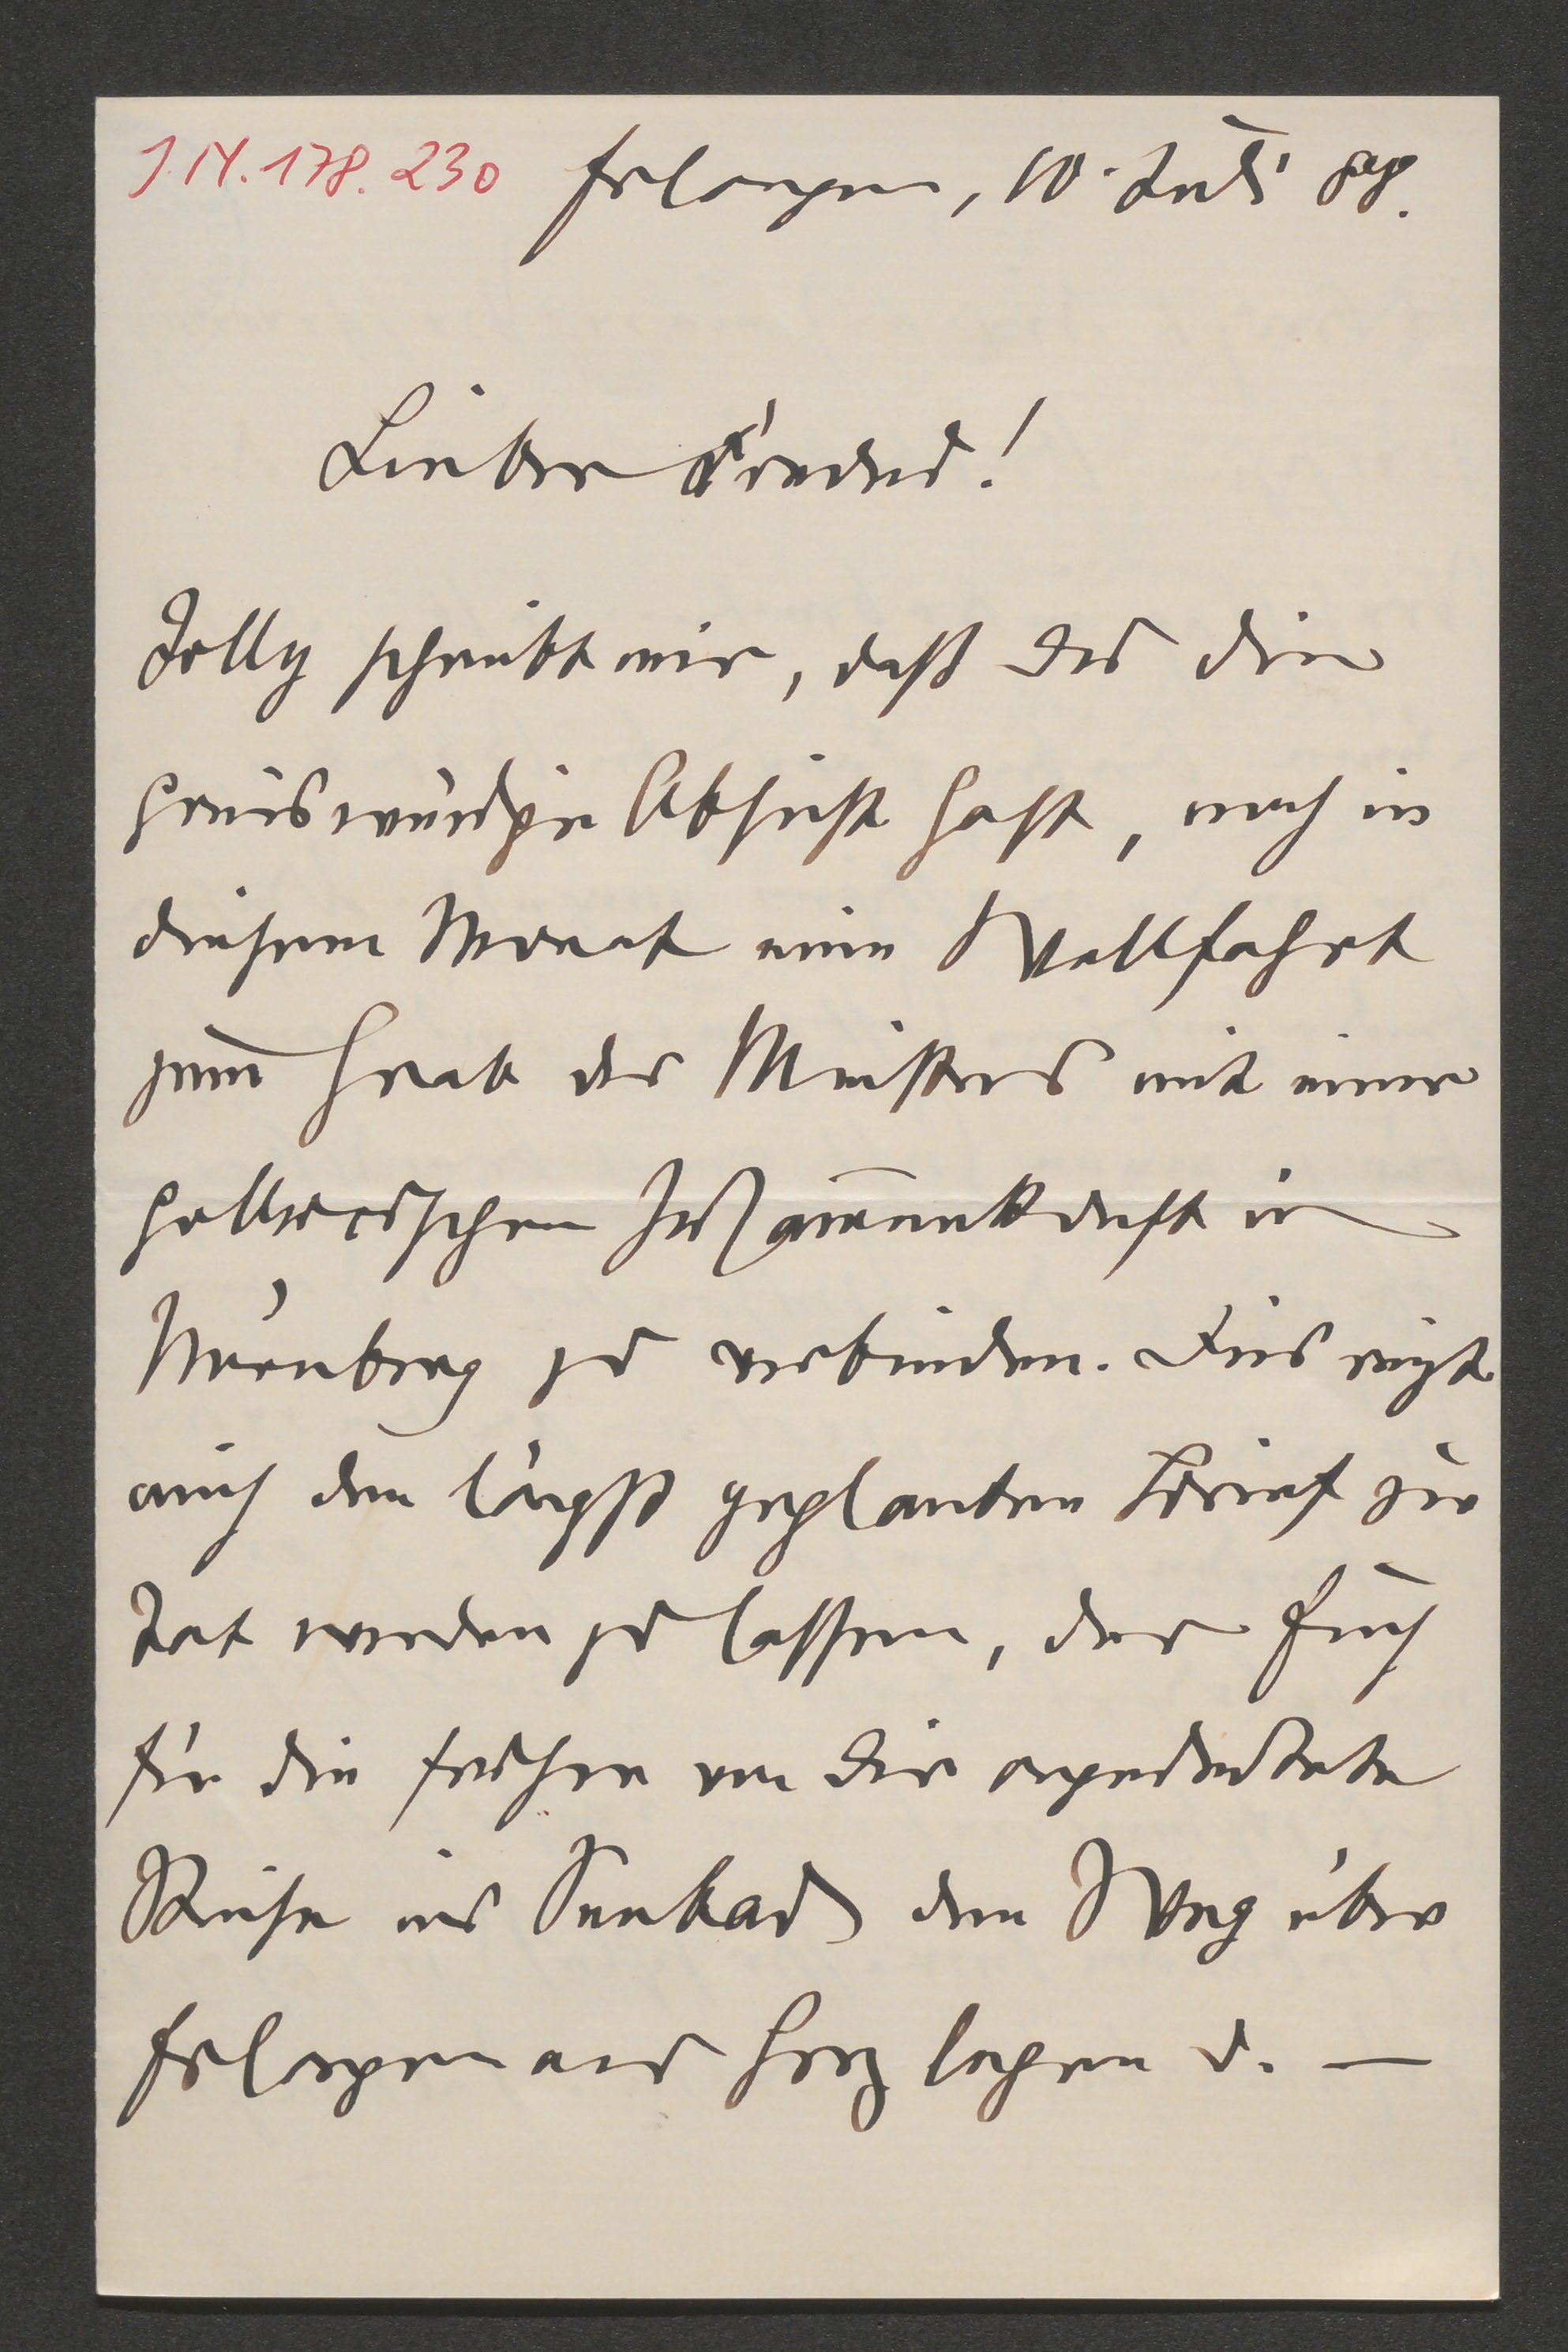 J.N. 178.230 Erlangen, 10. Juli 89.
Lieber Freund!
Jolly schreibt mir, daß Du die
preiswürdige Absicht hast, noch in
diesem Monat eine Wallfahrt
zum Grab des Meisters mit einer
Zusammenkunft in
Nürnberg zu verbinden. Dies
mich den längst geplanten Brief zur
Tat werden zu lassen, der Euch
für die früher von Dir angedeutete
Reise ins Seebad den Weg über
Erlangen ans Herz legen u. —